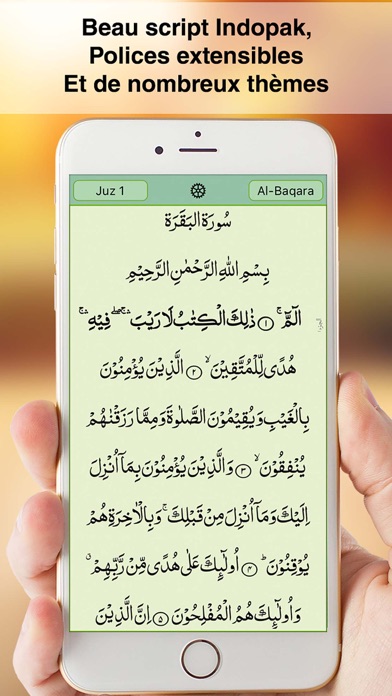 Beau script Indopak,
Polices extensibles
Et de nombreux thèmes
Juz 1
Al-Baqara
سُورَةُ الْبَقَرَةِ
بِسْمِ اللّٰهِ الرَّحْمٰنِ الرَّحِيْمِ
الٓمّٓ ۚ ﴿۱﴾ ذٰلِكَ الْكِتٰبُ لَا رَيْبَ ۛۖۚ فِيْهِ ۛۚ
هُدًى لِّلْمُتَّقِيْنَ ۙ ﴿۲﴾ الَّذِيْنَ يُؤْمِنُوْنَ
بِالْغَيْبِ وَيُقِيْمُوْنَ الصَّلٰوةَ وَمِمَّا رَزَقْنٰهُمْ
يُنْفِقُوْنَ ۙ ﴿۳﴾ وَالَّذِيْنَ يُؤْمِنُوْنَ بِمَاۤ اُنْزِلَ
اِلَيْكَ وَمَاۤ اُنْزِلَ مِنْ قَبْلِكَ ۚ وَبِالْاٰخِرَةِ هُمْ
يُوْقِنُوْنَ ؕ ﴿۴﴾ اُولٰٓئِكَ عَلٰى هُدًى مِّنْ رَّبِّهِمْ ۙ
وَاُولٰٓئِكَ هُمُ الْمُفْلِحُوْنَ ﴿۵﴾ اِنَّ الَّذِيْنَ